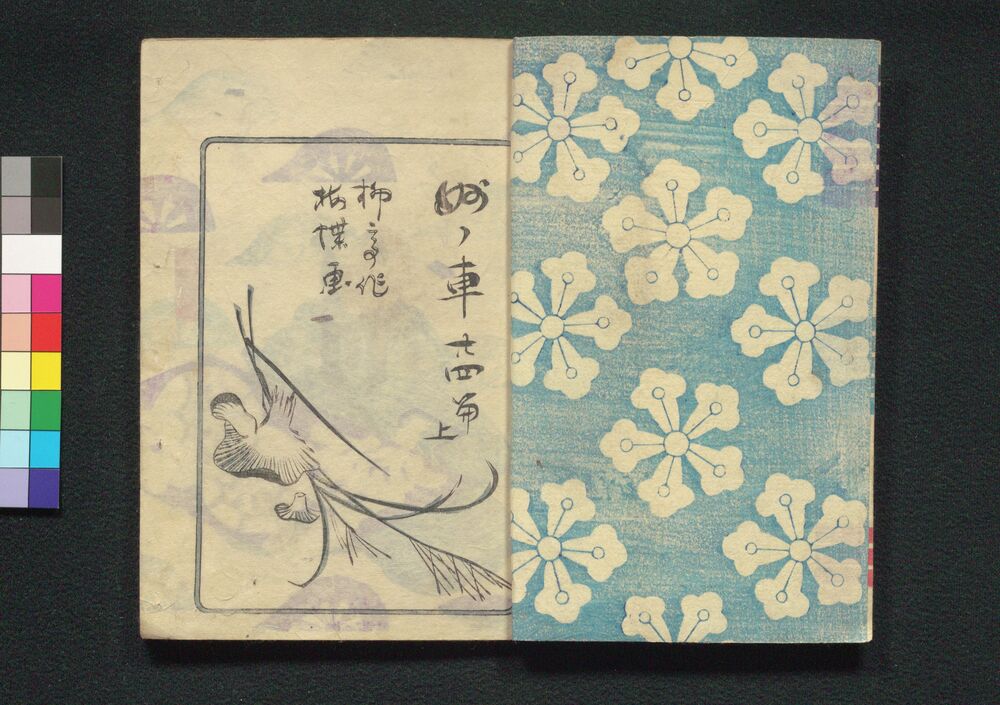 ノ車 廿四編
上
柳亭作
梅蝶画